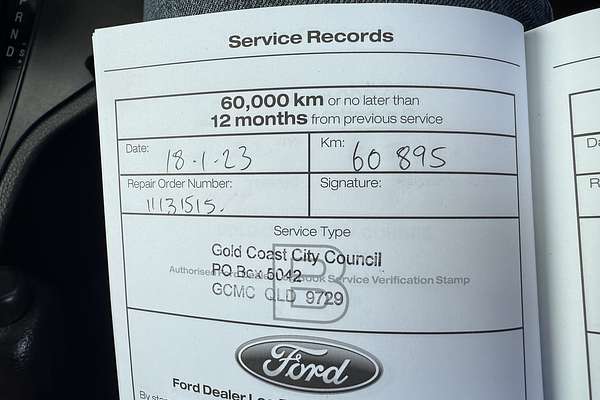 P R N D S
Service Records
60,000 km or no later than
12 months from previous service
Date: 18-1-23
Km: 60 895
Repair Order Number: 11131515.
Signature:
Service Type
B
Gold Coast City Council
PO Box 5042
Authorised Book Service Verification Stamp
GCMC QLD 9729
Ford
Ford Dealer
By